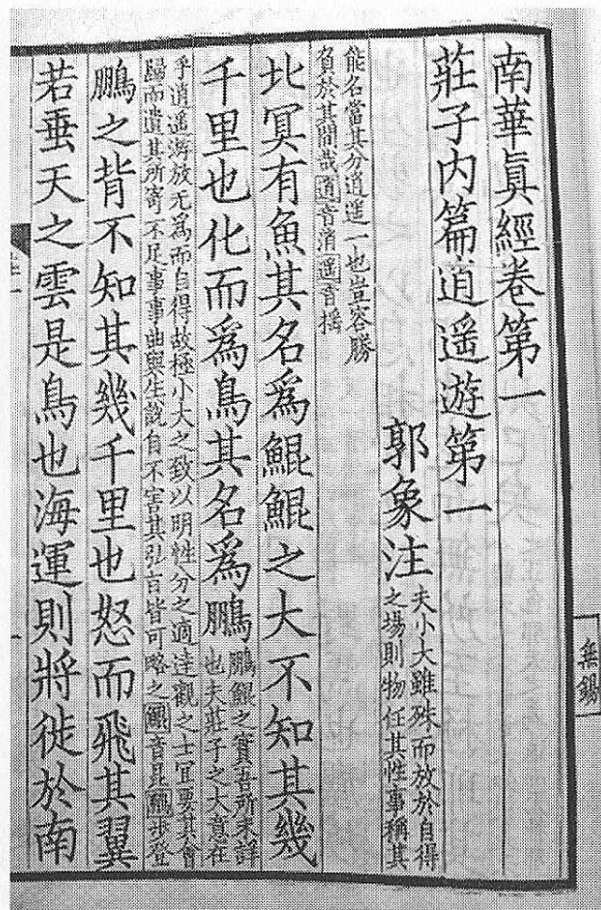 南華眞經卷第一
莊子内篇逍遥遊第一
郭象注
夫小大雖殊而放於自得
之場則物任其性事稱其
能名當其分逍遥一也豈容勝
負於其間哉逍音消遥音揺
北冥有魚其名爲鯤鯤之大不知其幾
千里也化而爲鳥其名爲鵬
鵬鯤之實吾所未詳
也夫莊子之大意在
乎逍遥游放无爲而自得故極小大之致以明性分之適達觀之士冝要其會
歸而遺其所寄不足事事曲與生說自不害其弘旨皆可略之鯤音昆鵬歩登
鵬之背不知其幾千里也怒而飛其翼
若垂天之雲是鳥也海運則將徙於南
無錫